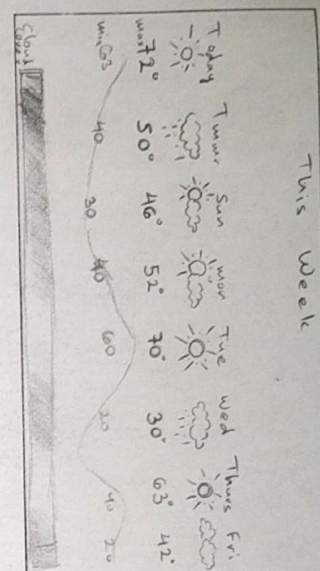 This Week
Today Tmwr Sun mon Tue Wed Thurs Fri
max 72° 50° 46° 52° 70° 30° 63° 42°
min 63 40 30 40 60 20 40 20
Cloud Cover